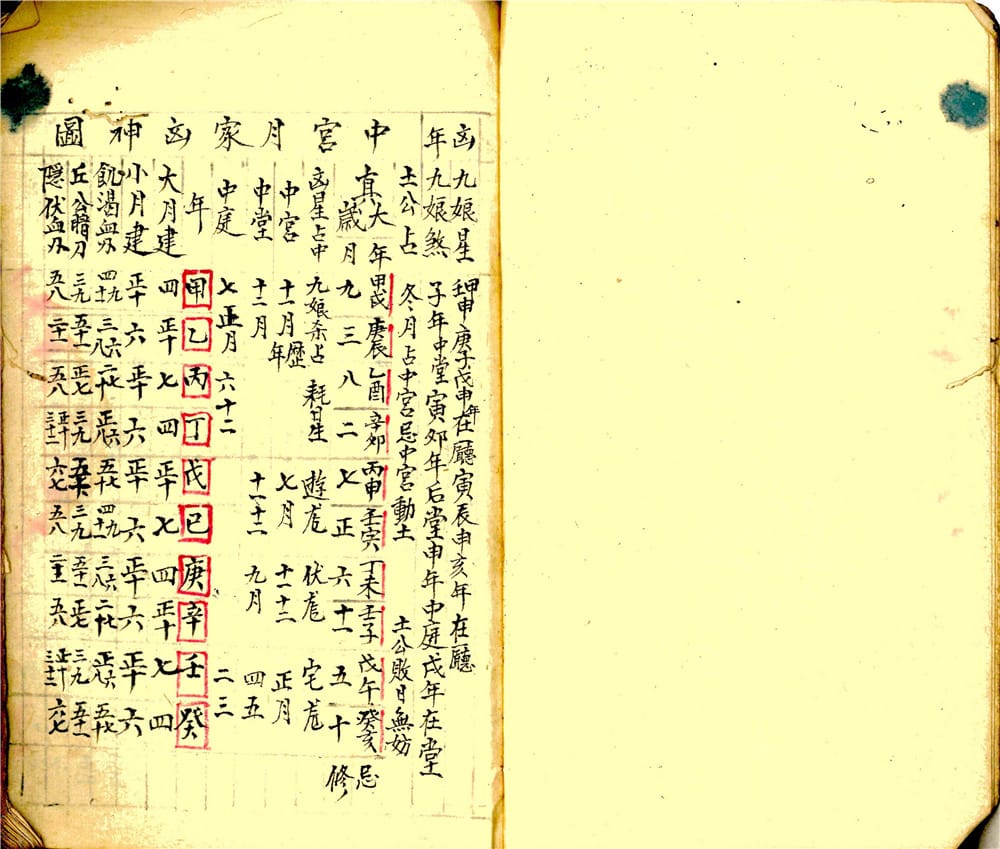 中宮月家凶神圖
凶九娘星 甲申壬申庚子戊申年在廳寅辰申亥年在廳
年九娘煞 子年中堂寅卯年后堂申年中庭戌年在堂
土公占 冬月占中宮忌中宮動土 土公敗日無妨
真大歲 年 甲戌 庚辰 乙酉 辛卯 丙申 壬寅 丁未 壬子 戊午 癸亥 忌
月 九 三 八 二 七 正 六 十一 五 十 修
凶星占中 九娘杀占 耗星 遊尨 伏尨 宅尨
中宮 十一月 年 七月 十一十二 正月
中堂 十二月 十一十二 九月 四五
中庭 七正月 六十二 二三
年 甲 乙 丙 丁 戊 己 庚 辛 壬 癸
大月建 四 正十 七 四 正十 七 四 正十 七 四
小月建 正十 六 正十 六 正十 六 正十 六 正十 六
飢渴血刃 四九十一 三六八 二七十 正六八 五七十 四九十一 三六八 二七十 正六八 五七十
丘公暗刀 三九 五十一 正七 三九 五十一 三九 五十一 正七 三九 五十一
隱伏血刃 五八 二十一 五八 正十三十二 六七 五八 二十一 五八 正十三十二 六七